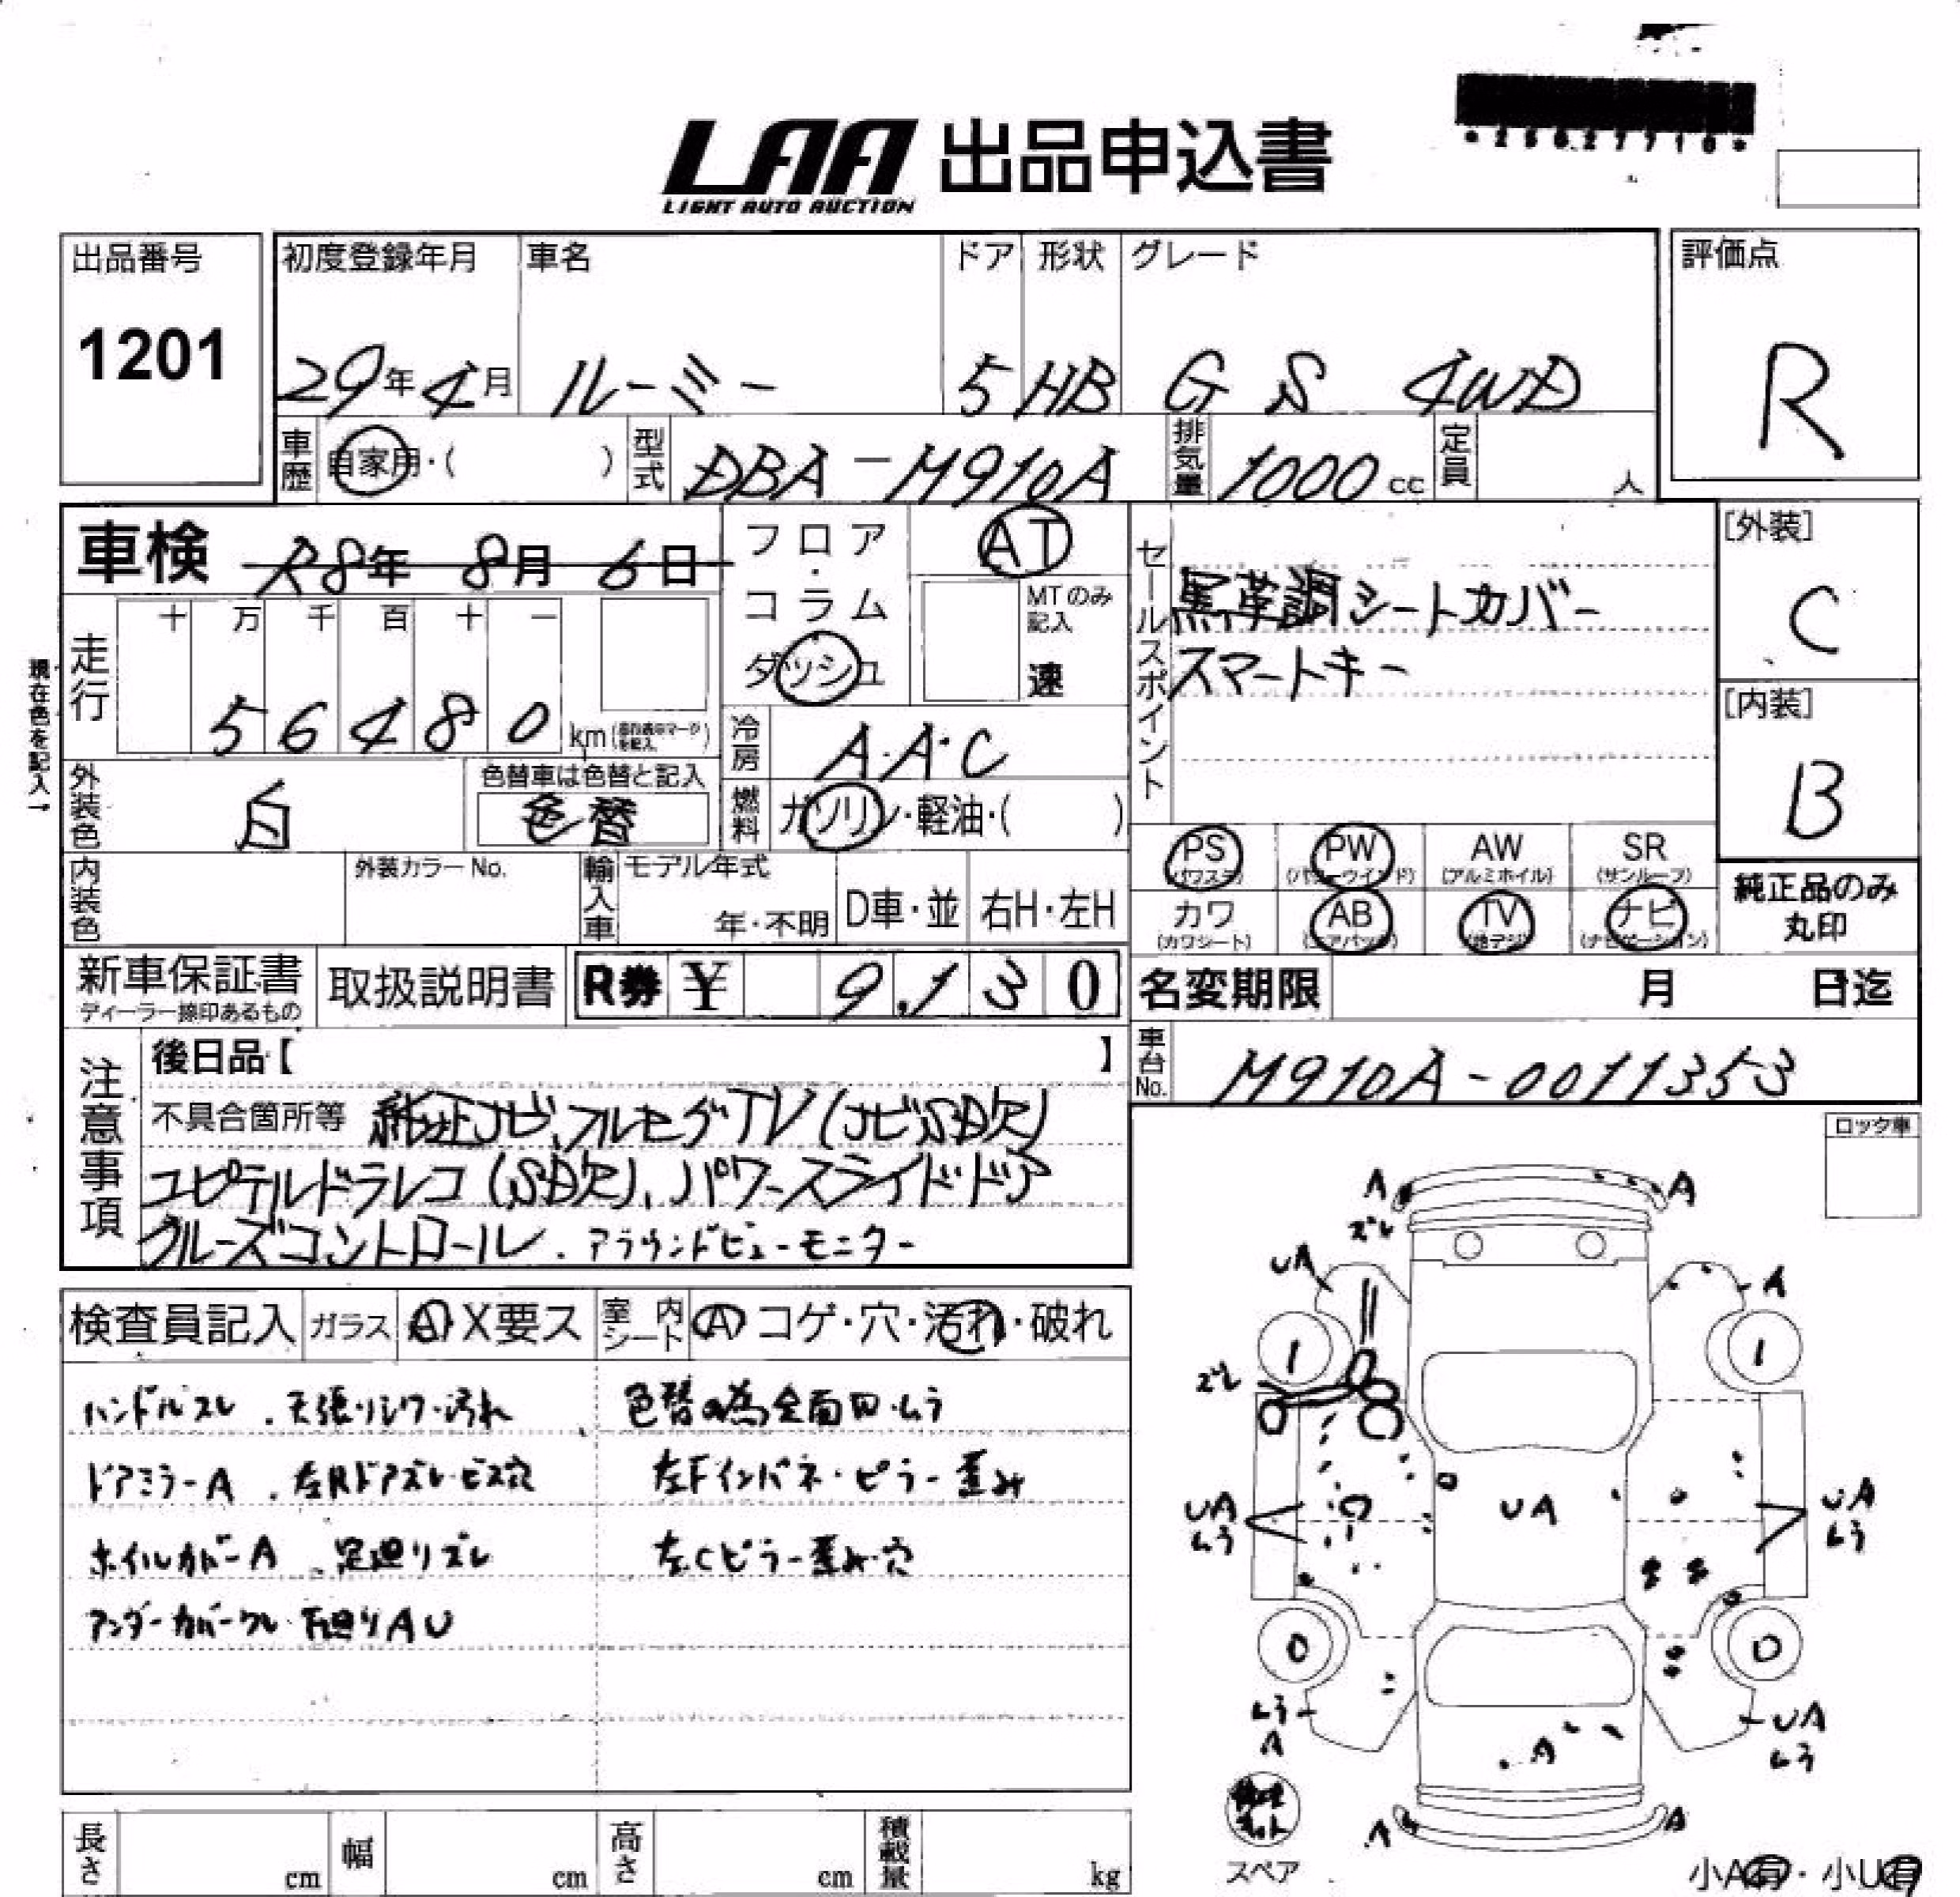 LAA 出品申込書
LIGHT AUTO AUCTION
*25627710*
出品番号
1201
初度登録年月 車名 ドア 形状 グレード
29年4月 ルーミー 5 HB G S 4WD
評価点
R
車歴 自家用・( ) 型式 DBA-M910A 排気量 1000cc 定員 人
車検 R8年 8月 6日
フロア・コラム ダッシュ
AT
MTのみ記入
速
セールスポイント
黒革調シートカバー
スマートキー
[外装]
C
[内装]
B
現在色を記入→
走行 十 万 千 百 十 一
5 6 4 8 0 km
冷房 A・A・C
外装色 白
色替車は色替と記入
色替
燃料 ガソリン・軽油・( )
PS (パワステ) PW (パワーウインド) AW (アルミホイル) SR (サンルーフ)
カワ (カワシート) AB (エアバック) TV (地デジ) ナビ (ナビゲーション)
純正品のみ
丸印
内装色 外装カラーNo. 輸入車 モデル年式 年・不明 D車・並 右H・左H
新車保証書
ディーラー捺印あるもの
取扱説明書 R券 ¥ 9,130
名変期限 月 日迄
注意事項
後日品【 】
車台No. M910A-0011353
不具合箇所等 純正ナビ、フルセグTV(ナビSD欠)
ユピテルドラレコ(SD欠)、パワースライドドア
クルーズコントロール、アラウンドビューモニター
ロック車
検査員記入 ガラス A X要ス 室内シート A コゲ・穴・汚れ・破れ
ハンドルスレ、天張りシワ・汚れ
色替の為全面凹・ムラ
ドアミラーA、左Rドアズレ・ビス穴
左Fインパネ・ピラー歪み
ホイルカバーA、足廻りズレ
左Cピラー歪み・穴
アンダーカバーワレ 下廻りAU
A A
ズレ
UA A
1 1
ズレ
UA ムラ UA UA ムラ
0 0
ムラ A UA ムラ
A
A A
スペア
小A有・小U有
長さ cm 幅 cm 高さ cm 積載量 kg